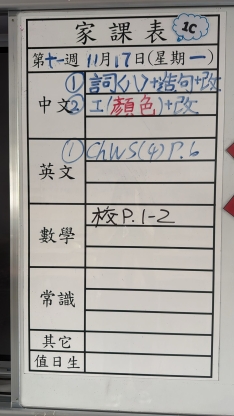 家課表 1C
第十一週 11月17日(星期一)
中文 ①詞(八)+造句+改
②工(顏色)+改
英文 ①ChWS(4) P.6
數學 板P.1-2
常識
其它
值日生